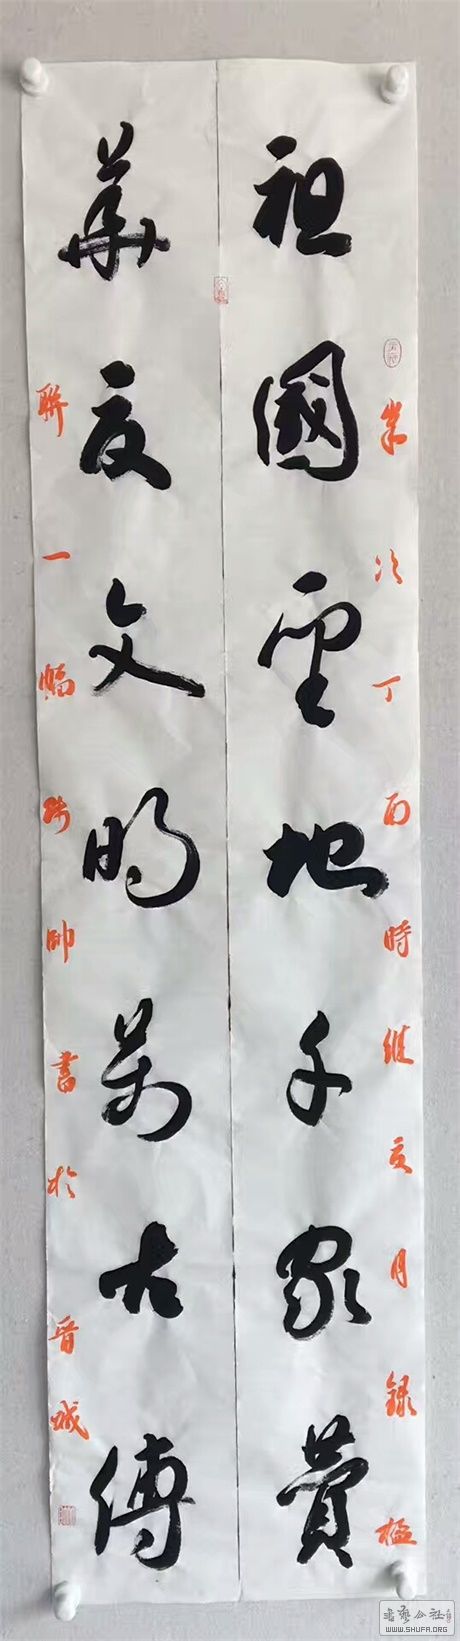 歲次丁酉時維亥月錄楹
祖國聖地千家
華夏文明萬古傳
聯一幅帥書於晋城
WWW.SHUFA.ORG